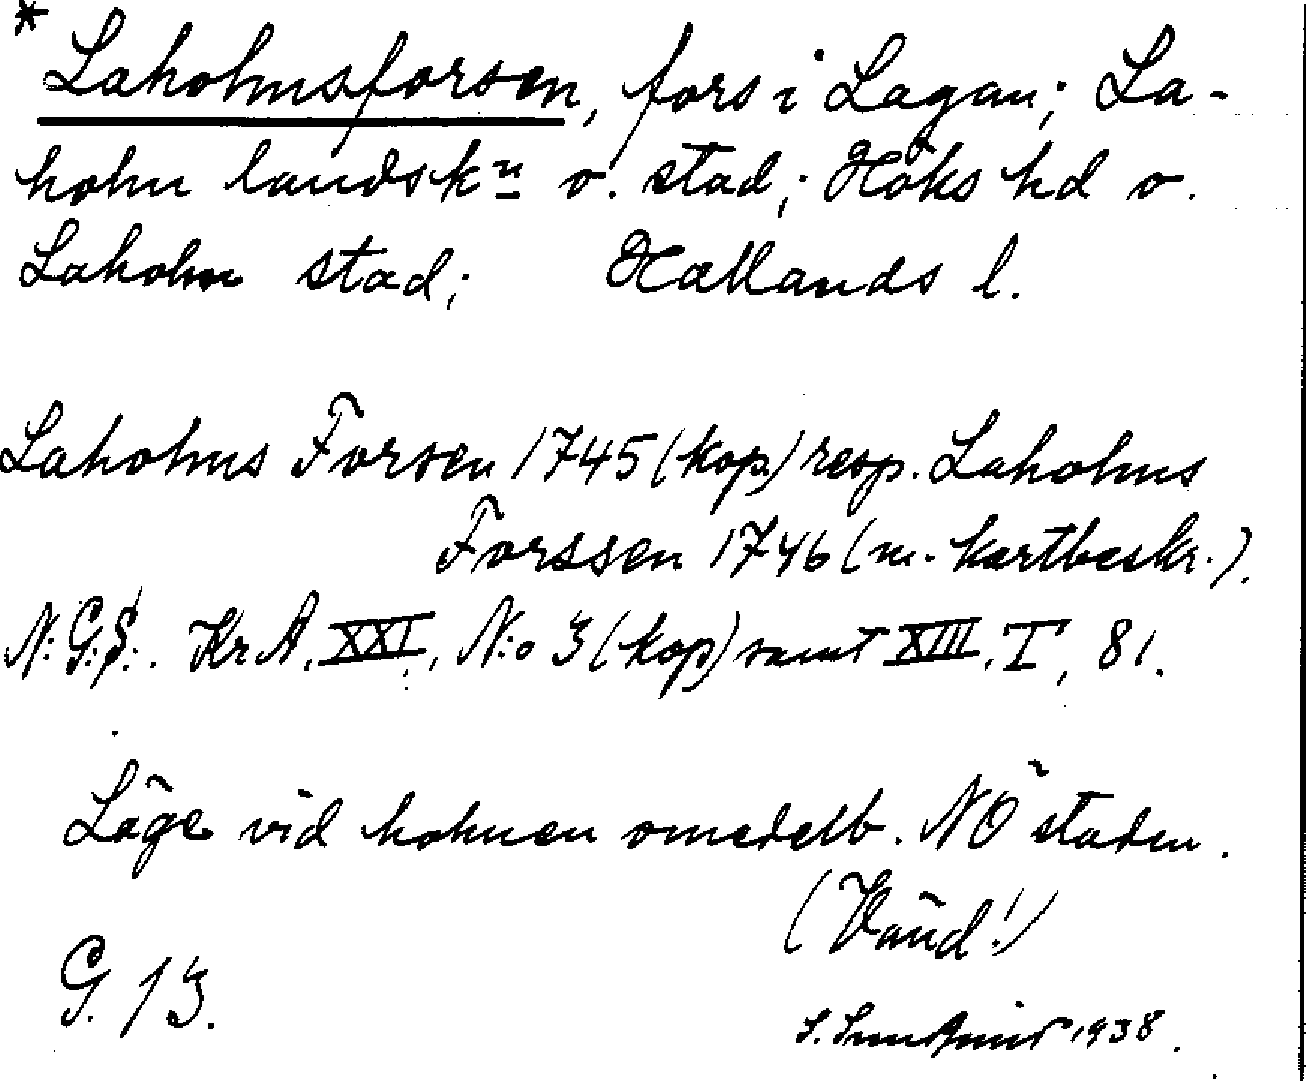 * Laholmsforsen, fors i Lagan; La-
holm landskn o. stad; Höks hd o.
Laholm stad; Hallands l.
Laholms Forsen 1745 (kop) resp. Laholms
Forssen 1746 (m. kartbeskr.).
N:G:S:. KrA. XXI, N:o 3 (kop) samt XIII. T, 81.
Läge vid holmen omedelb. NÖ staden.
(Vänd!)
G. 13.
1938.